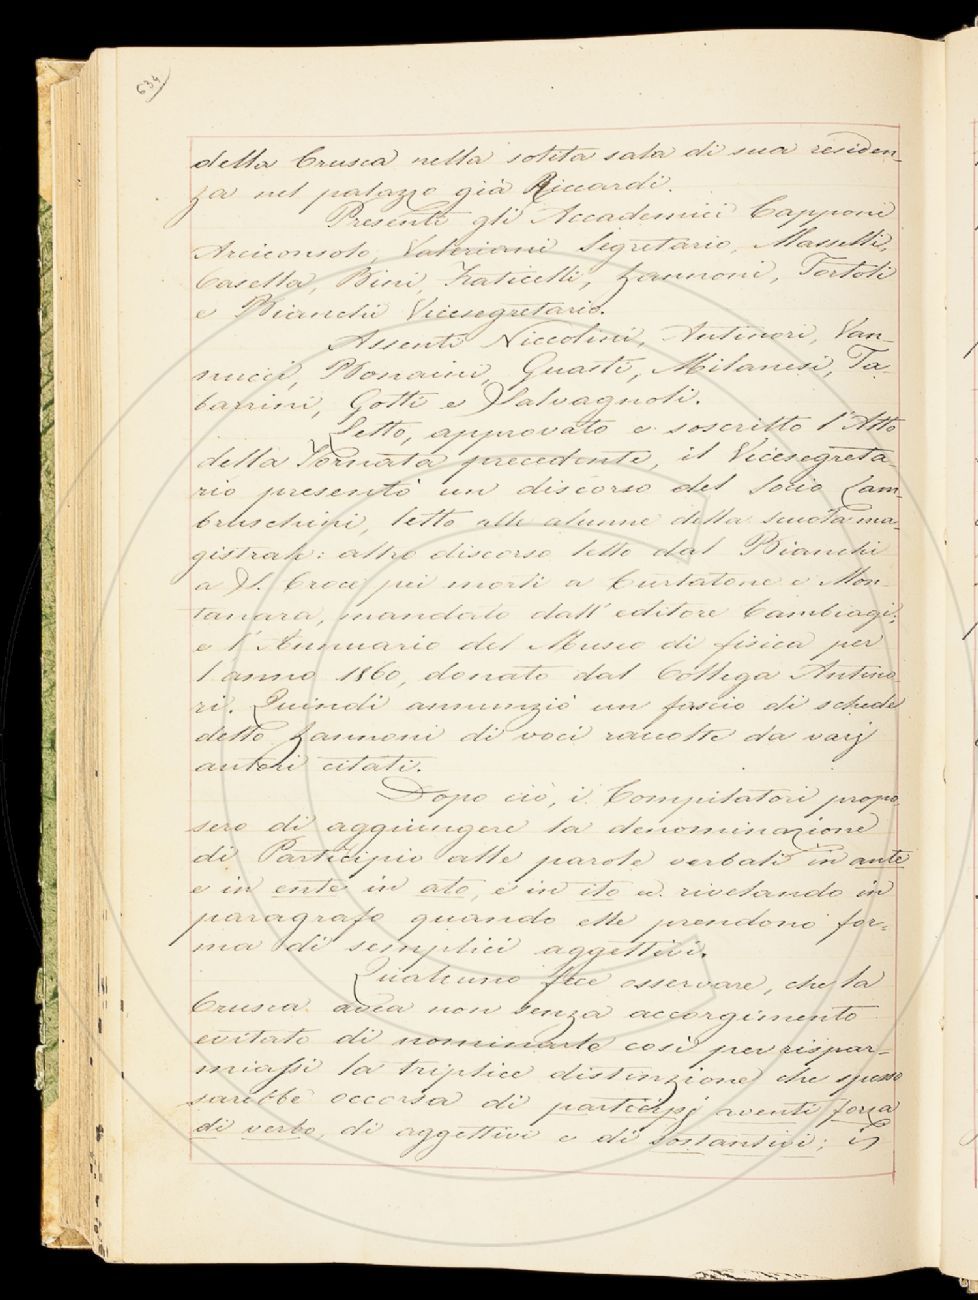 634
della Crusca nella solita sala di sua residen-
za nel palazzo già Riccardi.
Presenti gli Accademici Capponi
Arciconsolo, Valeriani Segretario, Masselli,
Casella, Bini, Fraticelli, Zannoni, Tortoli
e Bianchi Vicesegretario.
Assenti Niccolini, Antinori, Van-
nucci, Bonaini, Guasti, Milanesi, Ta-
barrini, Gotti e Salvagnoli.
Letto, approvato e soscritto l'Atto
della Tornata precedente, il Vicesegreta-
rio presentò un discorso del Socio Lam-
bruschini, letto alle alunne della scuola ma-
gistrale: altro discorso letto dal Bianchi
a S. Croce pei morti a Curtatone e Mon-
tanara, mandato dall'editore Cambiagi;
e l'Annuario del Museo di fisica per
l'anno 1860, donato dal Collega Antino-
ri. Quindi annunziò un fascio di schede
dello Zannoni di voci raccolte da varj
autori citati.
Dopo ciò, i Compilatori propo
sero di aggiungere la denominazione
di Participio alle parole verbali in ante
e in ente in ato, e in ito u. rivelando in
paragrafo quando elle prendono for-
ma di semplici aggettivi.
Qualcuno fece osservare, che la
Crusca avea non senza accorgimento
evitato di nominarle così per rispar-
miarsi la triplice distinzione che spesso
sarebbe occorsa di participj aventi forza
di verbo, di aggettivi e di sostantivi;